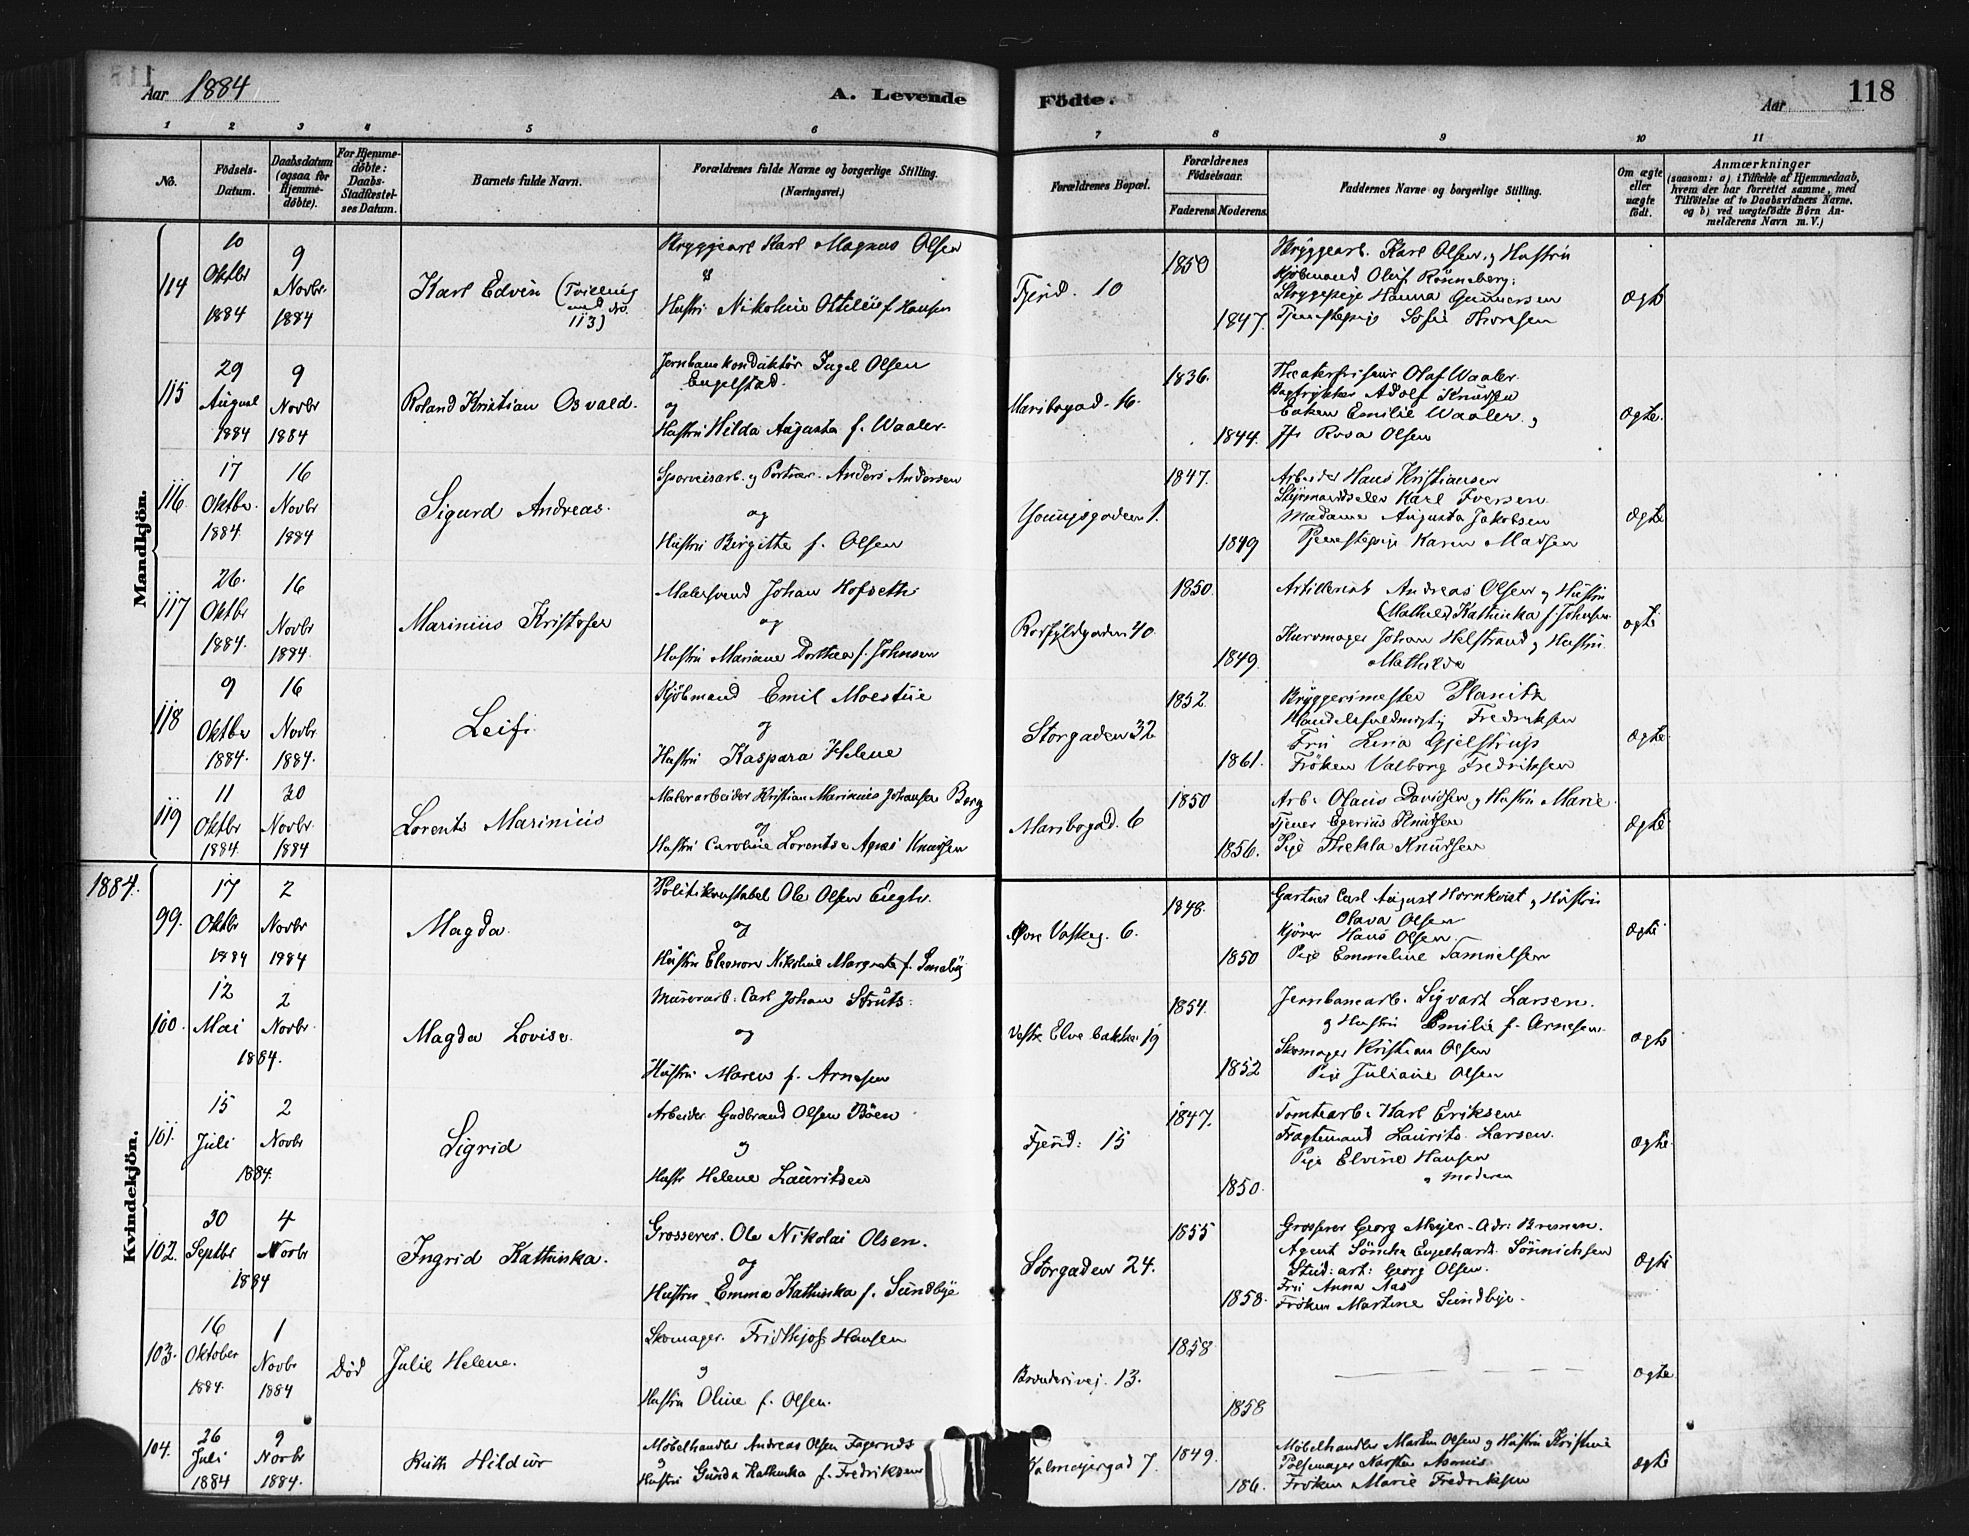 Aar 1884
A. Levende Födte.
Aar
118
1 2 3 4 5 6 7 8 9 10 11
No.
Födsels-Datum.
Daabsdatum (ogsaa for Hjemme-döbte).
For Hjemme-döbte: Daabs-Stadfæstel-ses Datum.
Barnets fulde Navn.
Forældrenes fulde Navne og borgerlige Stilling.
(Næringsvei.)
Forældrenes Bopæl.
Forældrenes Födselsaar.
Faderens. Moderens.
Faddernes Navne og borgerlige Stilling.
Om ægte eller uægte födt.
Anmærkninger
(saasom: a) i Tilfælde af Hjemmedaab, hvem der har forrettet samme, med Tilföielse af to Daabsvidners Navne, og b) ved uægtefödte Börn An-melderens Navn m. V.)
Mandkjön.
114
10 Oktbr 1884
9 Novbr. 1884
Karl Edvin (Tvilling med No. 113)
Bryggearb Karl Magnus Olsen
&
Hustru Nikoline Ottilie f. Hansen
Fjerd. 10
1850
1847.
Bryggearb. Karl Olsen, og Hustru
Kjöbmand Oluf Rönneberg;
Strygepige Hanna Gunnersen
Tjenestepige Sofie Thoresen
Ægte
115
29 August 1884
9 Novbr 1884
Roland Kristian Osvald.
Jernbanekonduktör Ingel Olsen
Engelstad.
og
Hustru Hilda Augusta f. Waaler.
Maribogad. 16.
1836.
1844.
Theaterfriseur Olaf Waaler.
Bogtrykker Adolf Knudsen
Enken Emilie Waaler og
Jfr Rosa Olsen
Ægte.
116
17 Oktbr. 1884.
16 Novbr 1884
Sigurd Andreas.
Sporveisarb. og Portner. Anders Andersen
og
Hustru Birgitte f. Olsen
Youngsgaden 1.
1847.
1849
Arbeider Hans Kristiansen
Styrmandselev Karl Iversen
Madame Augusta Jakobsen
Tjenestepige Karen Madsen
Ægte
117
26. Oktbr 1884.
16 Novbr 1884.
Marinius Kristofer
Malersvend Johan Hofseth
og
Hustru Mariane Dorthea f. Johnsen
1850.
40.
1849.
Artillerist Andreas Olsen og Hustru
Mathilde Kathinka f Johnsen.
Kurvmager Johan Helstrand og Hustru
Mathilde
ægte
118
9 Oktbr 1884.
16 Novbr. 1884.
Leif.
Kjöbmand Emil Moestue
og
Hustru Kaspara Helene
Storgaden 32
1852.
1861.
Bryggerimester Planitz
Handelsfuldmægtig Fredriksen
Fru Lina Gjelstrup
Fröken Valborg Fredriksen
Ægte.
119
11 Oktbr 1884.
30 Novbr. 1884
Lorents Marinius
Malerarbeider Kristian Marinius Johansen Berg
og
Hustru Caroline Lorentse Agnes Knudsen
Maribogad. 6
1850
1856.
Arb. Olaus Davidsen og Hustru Marie.
Tjener Egerius Knudsen
Pige Thekla Knudsen
Ægte
1884.
Kvindekjön.
99.
17 Oktbr 1884
2 Novbr 1884
Magda.
Politikonstabel Ole Olsen Engh.
og
Hustru Eleonore Nikoline Margrete f.
Øvre Vaskeg. 6.
1848.
1850
Gartner Carl August Hornkvist og Hustru
Olava Olsen
Kjörer Hans Olsen
Pige Emmeline Samuelsen
Ægte
100.
12 Mai
2 Novbr.
1884.
Magda Lovise.
Murerarb: Carl Johan Struts.
og
Hustru Maren f. Arnesen
Vestre Elvebakke 19
1854.
1852
Jernbanearb. Sigvart Larsen.
og Hustru Emilie f. Arnesen.
Skomager Kristian Olsen
Pige Juliane Olsen
Ægte
101.
15 Juli
2 Novbr
1884.
Sigrid
Arbeider Gudbrand Olsen Böen
og
Hustr Helene Lauritsen
Fjerd: 15
1847.
1850.
Tomtearb. Karl Eriksen
Fragtemand Laurits Larsen.
Pige Elvine Hansen
og Moderen
Ægte.
102.
30 Septbr
4 Novbr
1884
Ingrid Kathinka.
Grosserer. Ole Nikolai Olsen.
og
Hustru Emma Kathinka f. Sundbye
Storgaden 24.
1855
1858.
Grosserer Georg Meyer. Adr: Bremen.
Agent Söncke Engelhardt Sönnichsen
Stud: art: Georg Olsen.
Fru Anna Aas
Fröken Martine Sundbye.
Ægte
103.
16 Oktober 1884.
1 Novbr 1884
Död
Julie Helene.
Skomager. Fridthjof Hansen
og
Hustru Oline f. Olsen.
13.
1858
1858
Ægte
104.
26 Juli 1884
9 Novbr 1884.
Ruth Hildur
Möbelhandler Andreas Olsen Fagernæs
og
Hustru Gunda Kathinka f. Fredriksen
Calmeyergad 7.
1849.
186.
Möbelhandler Martin Olsen og Hustru Kristine
Pölsemager
Fröken Marie Fredriksen
Ægte